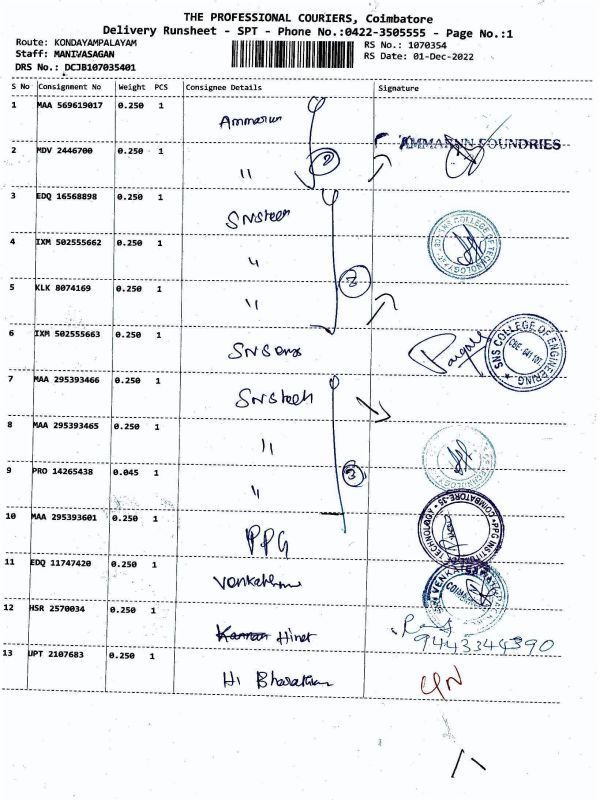 THE PROFESSIONAL COURIERS, Coimbatore
Delivery Runsheet - SPT - Phone No.:0422-3505555 - Page No.:1
Route: KONDAYAMPALAYAM
Staff: MANIVASAGAN
DRS No.: DCJB107035401
RS No.: 1070354
RS Date: 01-Dec-2022
S No Consignment No Weight PCS Consignee Details Signature
1 MAA 569619017 0.250 1 Ammarun
AMMARUN FOUNDRIES
2 MDV 2446700 0.250 1 "
2
3 EDQ 16568898 0.250 1 SNStech
4 IXM 502555662 0.250 1 "
SNS COLLEGE OF TECHNOLOGY
5 KLK 8074169 0.250 1 "
3
6 IXM 502555663 0.250 1 SNS
SNS COLLEGE OF ENGINEERING
CBE-641 107
7 MAA 295393466 0.250 1 SNStech
8 MAA 295393465 0.250 1 "
9 PRO 14265438 0.045 1 "
3
10 MAA 295393601 0.250 1 PPG
PPG INSTITUTE OF TECHNOLOGY COIMBATORE-35
11 EDQ 11747420 0.250 1
12 HSR 2570034 0.250 1 Kannan
9443344390
13 UPT 2107683 0.250 1